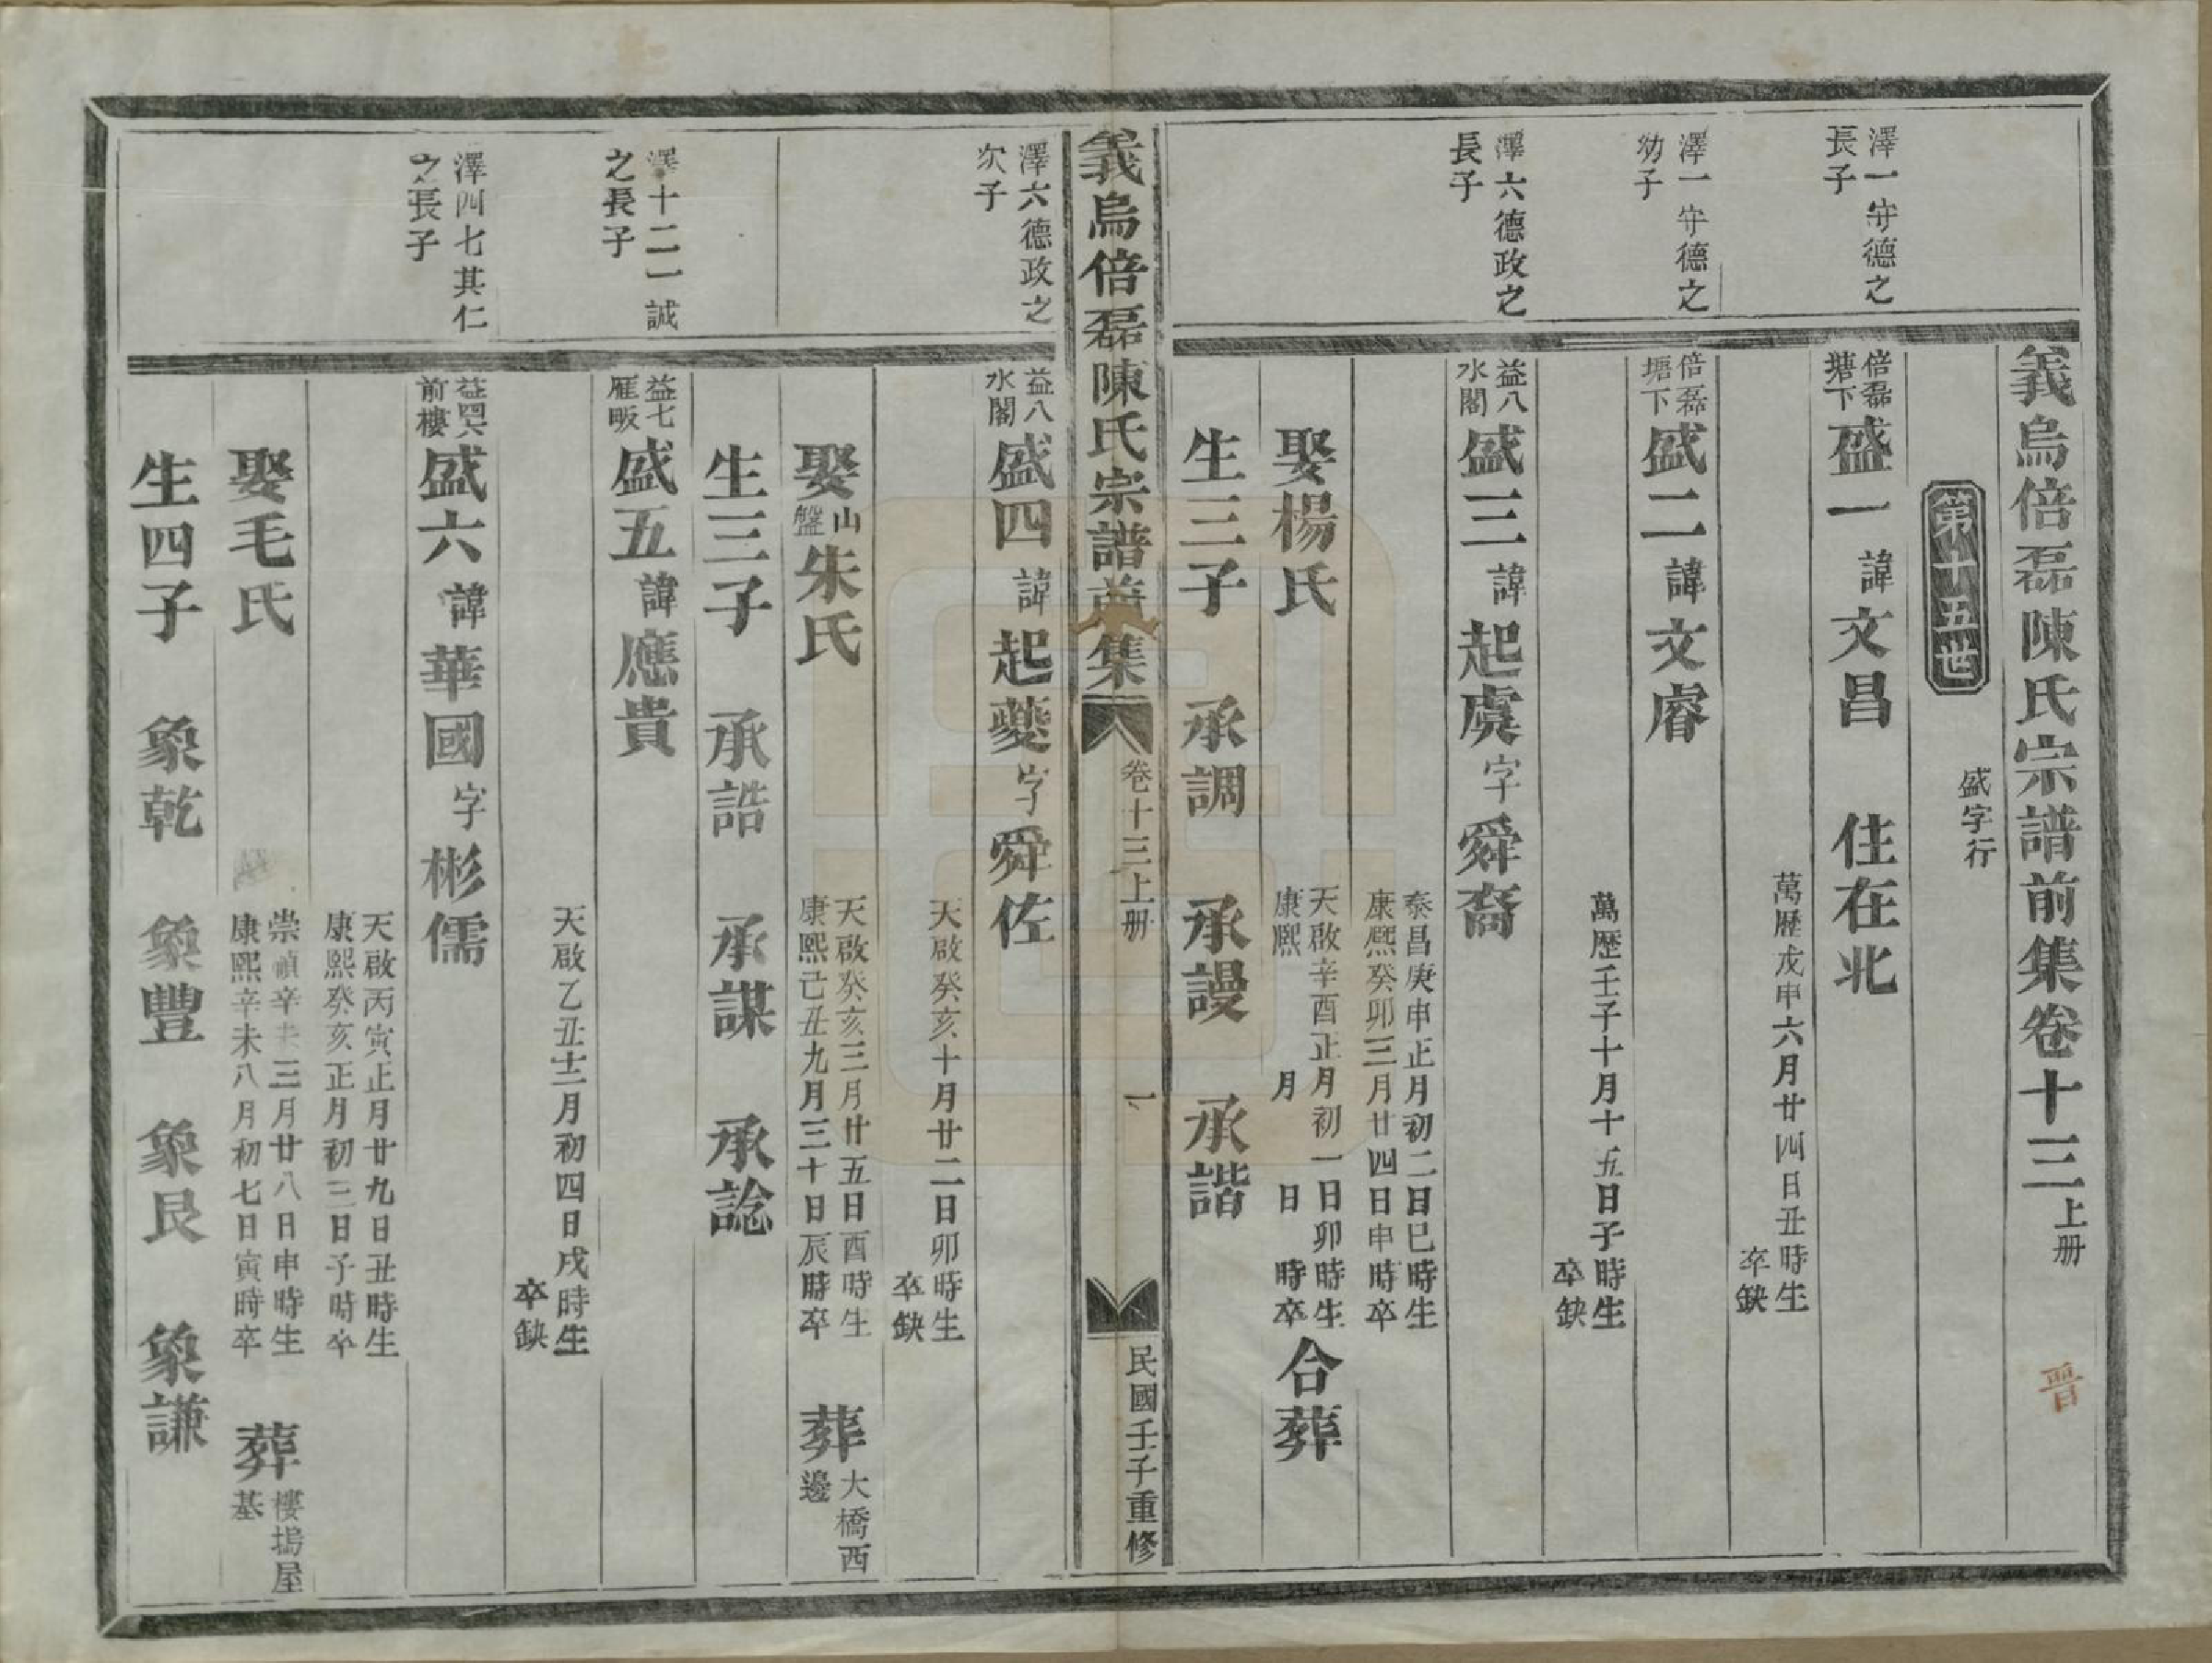 義烏倍磊陳氏宗譜前集卷十三上册
晋
第十五世
盛字行
澤一守德之
長子
倍磊
塘下
盛一諱文昌　住在北
萬歷戊申六月廿四日丑時生
卒缺
澤一守德之
幼子
倍磊
塘下
盛二諱文睿
萬歷壬子十月十五日子時生
卒缺
澤六德政之
長子
益八
水閣
盛三諱起虞字舜裔
泰昌庚申正月初二日巳時生
康熙癸卯三月廿四日申時卒
娶楊氏
天啟辛酉正月初一日卯時生
康熙　月　日　時卒
合葬
生三子　承調　承謾　承諧
義烏倍磊陳氏宗譜前集
卷十三上册
一
民國壬子重修
澤六德政之
次子
益八
水閣
盛四諱起夔字舜佐
天啟癸亥十月廿二日卯時生
卒缺
娶山盤朱氏
天啟癸亥三月廿五日酉時生
康熙己丑九月三十日辰時卒
葬大橋西
邊
生三子　承誥　承謀　承諗
澤十二一誠
之長子
益七
雁畈
盛五諱應貴
天啟乙丑十二月初四日戌時生
卒缺
澤四七其仁
之長子
益四六
前樓
盛六諱華國字彬儒
天啟丙寅正月廿九日丑時生
康熙癸亥正月初三日子時卒
娶毛氏
崇禎辛未三月廿八日申時生
康熙辛未八月初七日寅時卒
葬樓塢屋
基
生四子　象乾　象豐　象艮　象謙